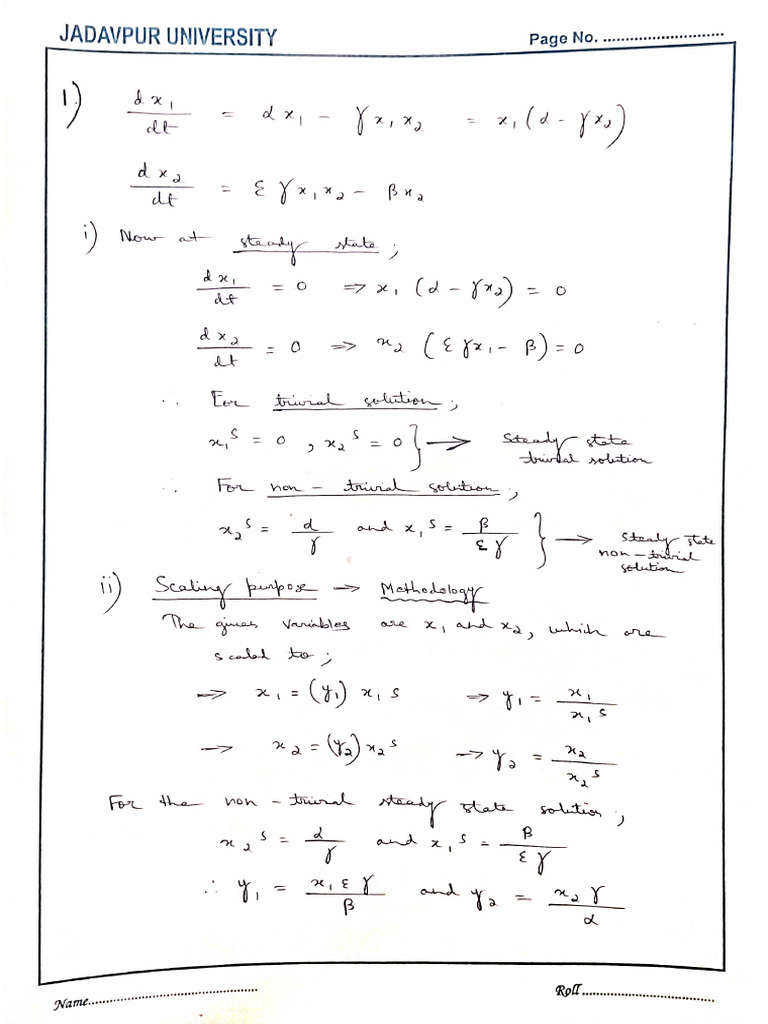 JADAVPUR UNIVERSITY
Page No. ............................
1) dx₁/dt = αx₁ - γx₁x₂ = x₁(α - γx₂)
dx₂/dt = εγx₁x₂ - βx₂
i) Now at steady state;
dx₁/dt = 0 ⇒ x₁(α - γx₂) = 0
dx₂/dt = 0 ⇒ x₂(εγx₁ - β) = 0
∴ For trivial solution;
x₁ˢ = 0, x₂ˢ = 0} → Steady state trivial solution
∴ For non-trivial solution;
x₂ˢ = α/γ and x₁ˢ = β/εγ} → Steady state non-trivial solution
ii) Scaling purpose → Methodology
The given variables are x₁ and x₂, which are
scaled to;
⇒ x₁ = (y₁) x₁s ⇒ y₁ = x₁/x₁s
→ x₂ = (y₂) x₂ˢ → y₂ = x₂/x₂ˢ
For the non-trivial steady state solution;
x₂ˢ = α/γ and x₁ˢ = β/εγ
∴ y₁ = x₁εγ/β and y₂ = x₂γ/α
Name................................................ Roll.....................................